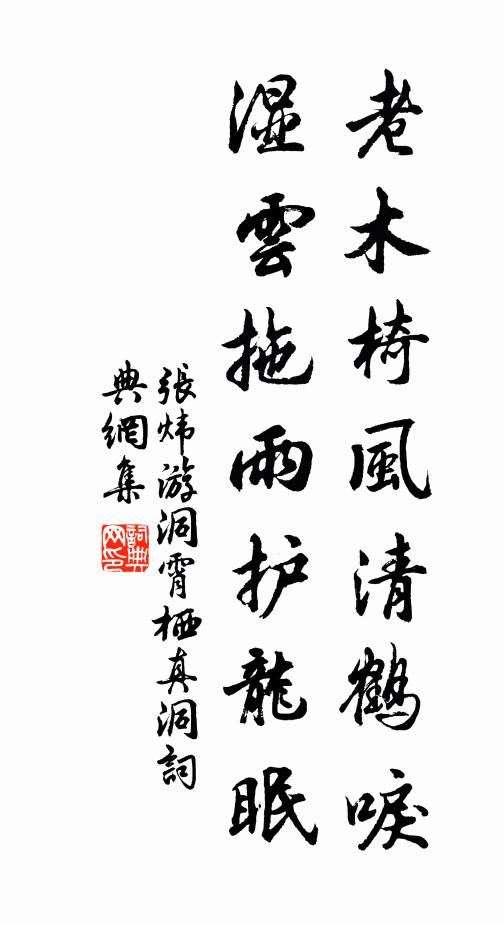 老木椅風清鶴唳
湿雲拖雨护龍眠
張炜游洞霄栖真洞詞
典網集
詞典
网印